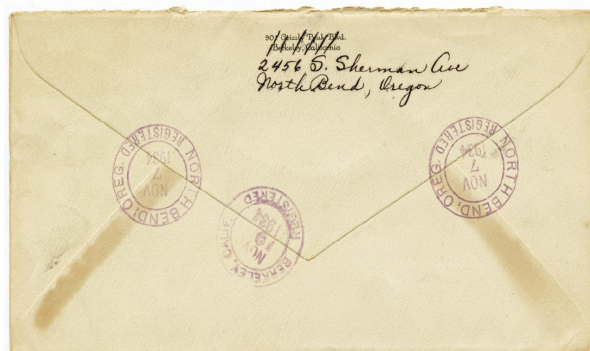 907 Grizzly Peak Blvd.
Berkeley, California
2456 S. Sherman Ave
North Bend, Oregon
NORTH BEND, OREG. REGISTERED
NOV
7
1934
NORTH BEND, OREG. REGISTERED
NOV
7
1934
BERKELEY, CALIF. REGISTERED
NOV
9
1934